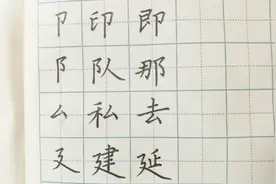 卩印即
阝队那
厶私去
廴建延